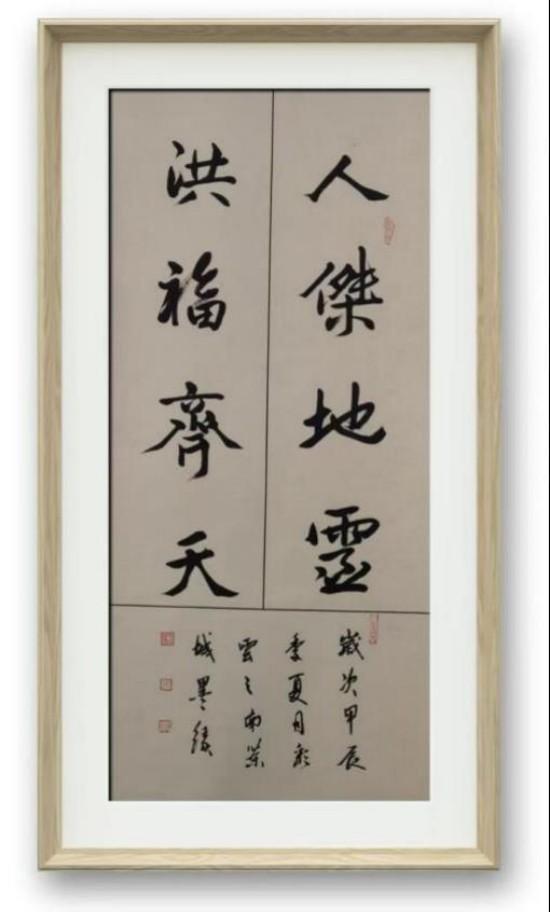 人傑地靈
洪福齊天
歲次甲辰
季夏月彩
雲之南
城墨